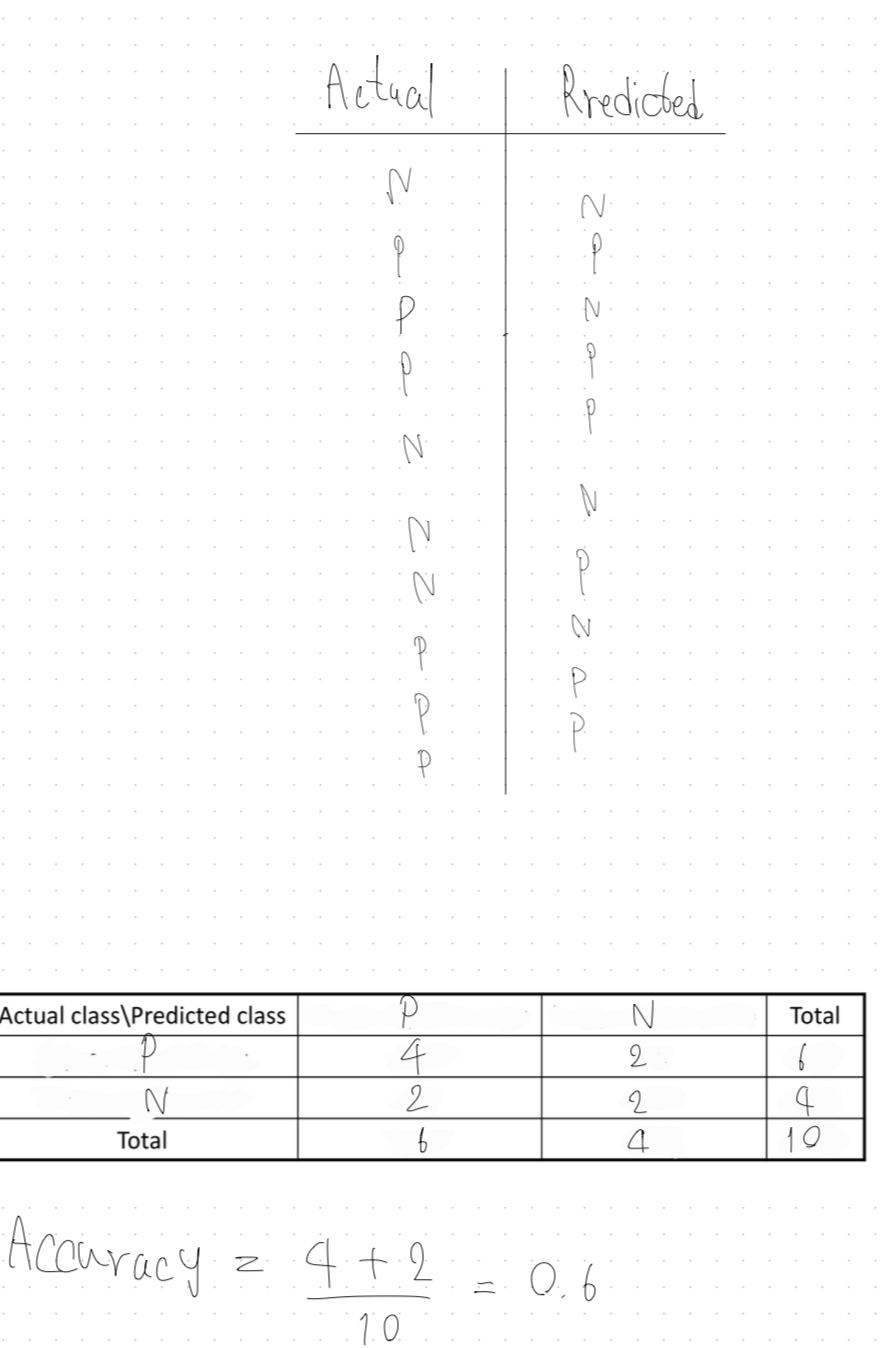 Actual Rredicted
N N
P P
P N
P P
N P
N N
N P
P N
P P
P P
Actual class\Predicted class P N Total
P 4 2 6
N 2 2 4
Total 6 4 10
Accuracy = 4 + 2 = 0.6
10